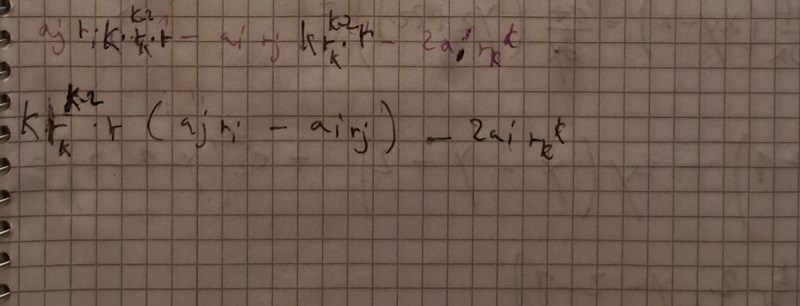 aj ri k · r_k^{k-2} · r - ai rj k r_k^{k-2} · r - 2ai r_k^k
k r_k^{k-2} · r (aj ri - ai rj) - 2ai r_k^k